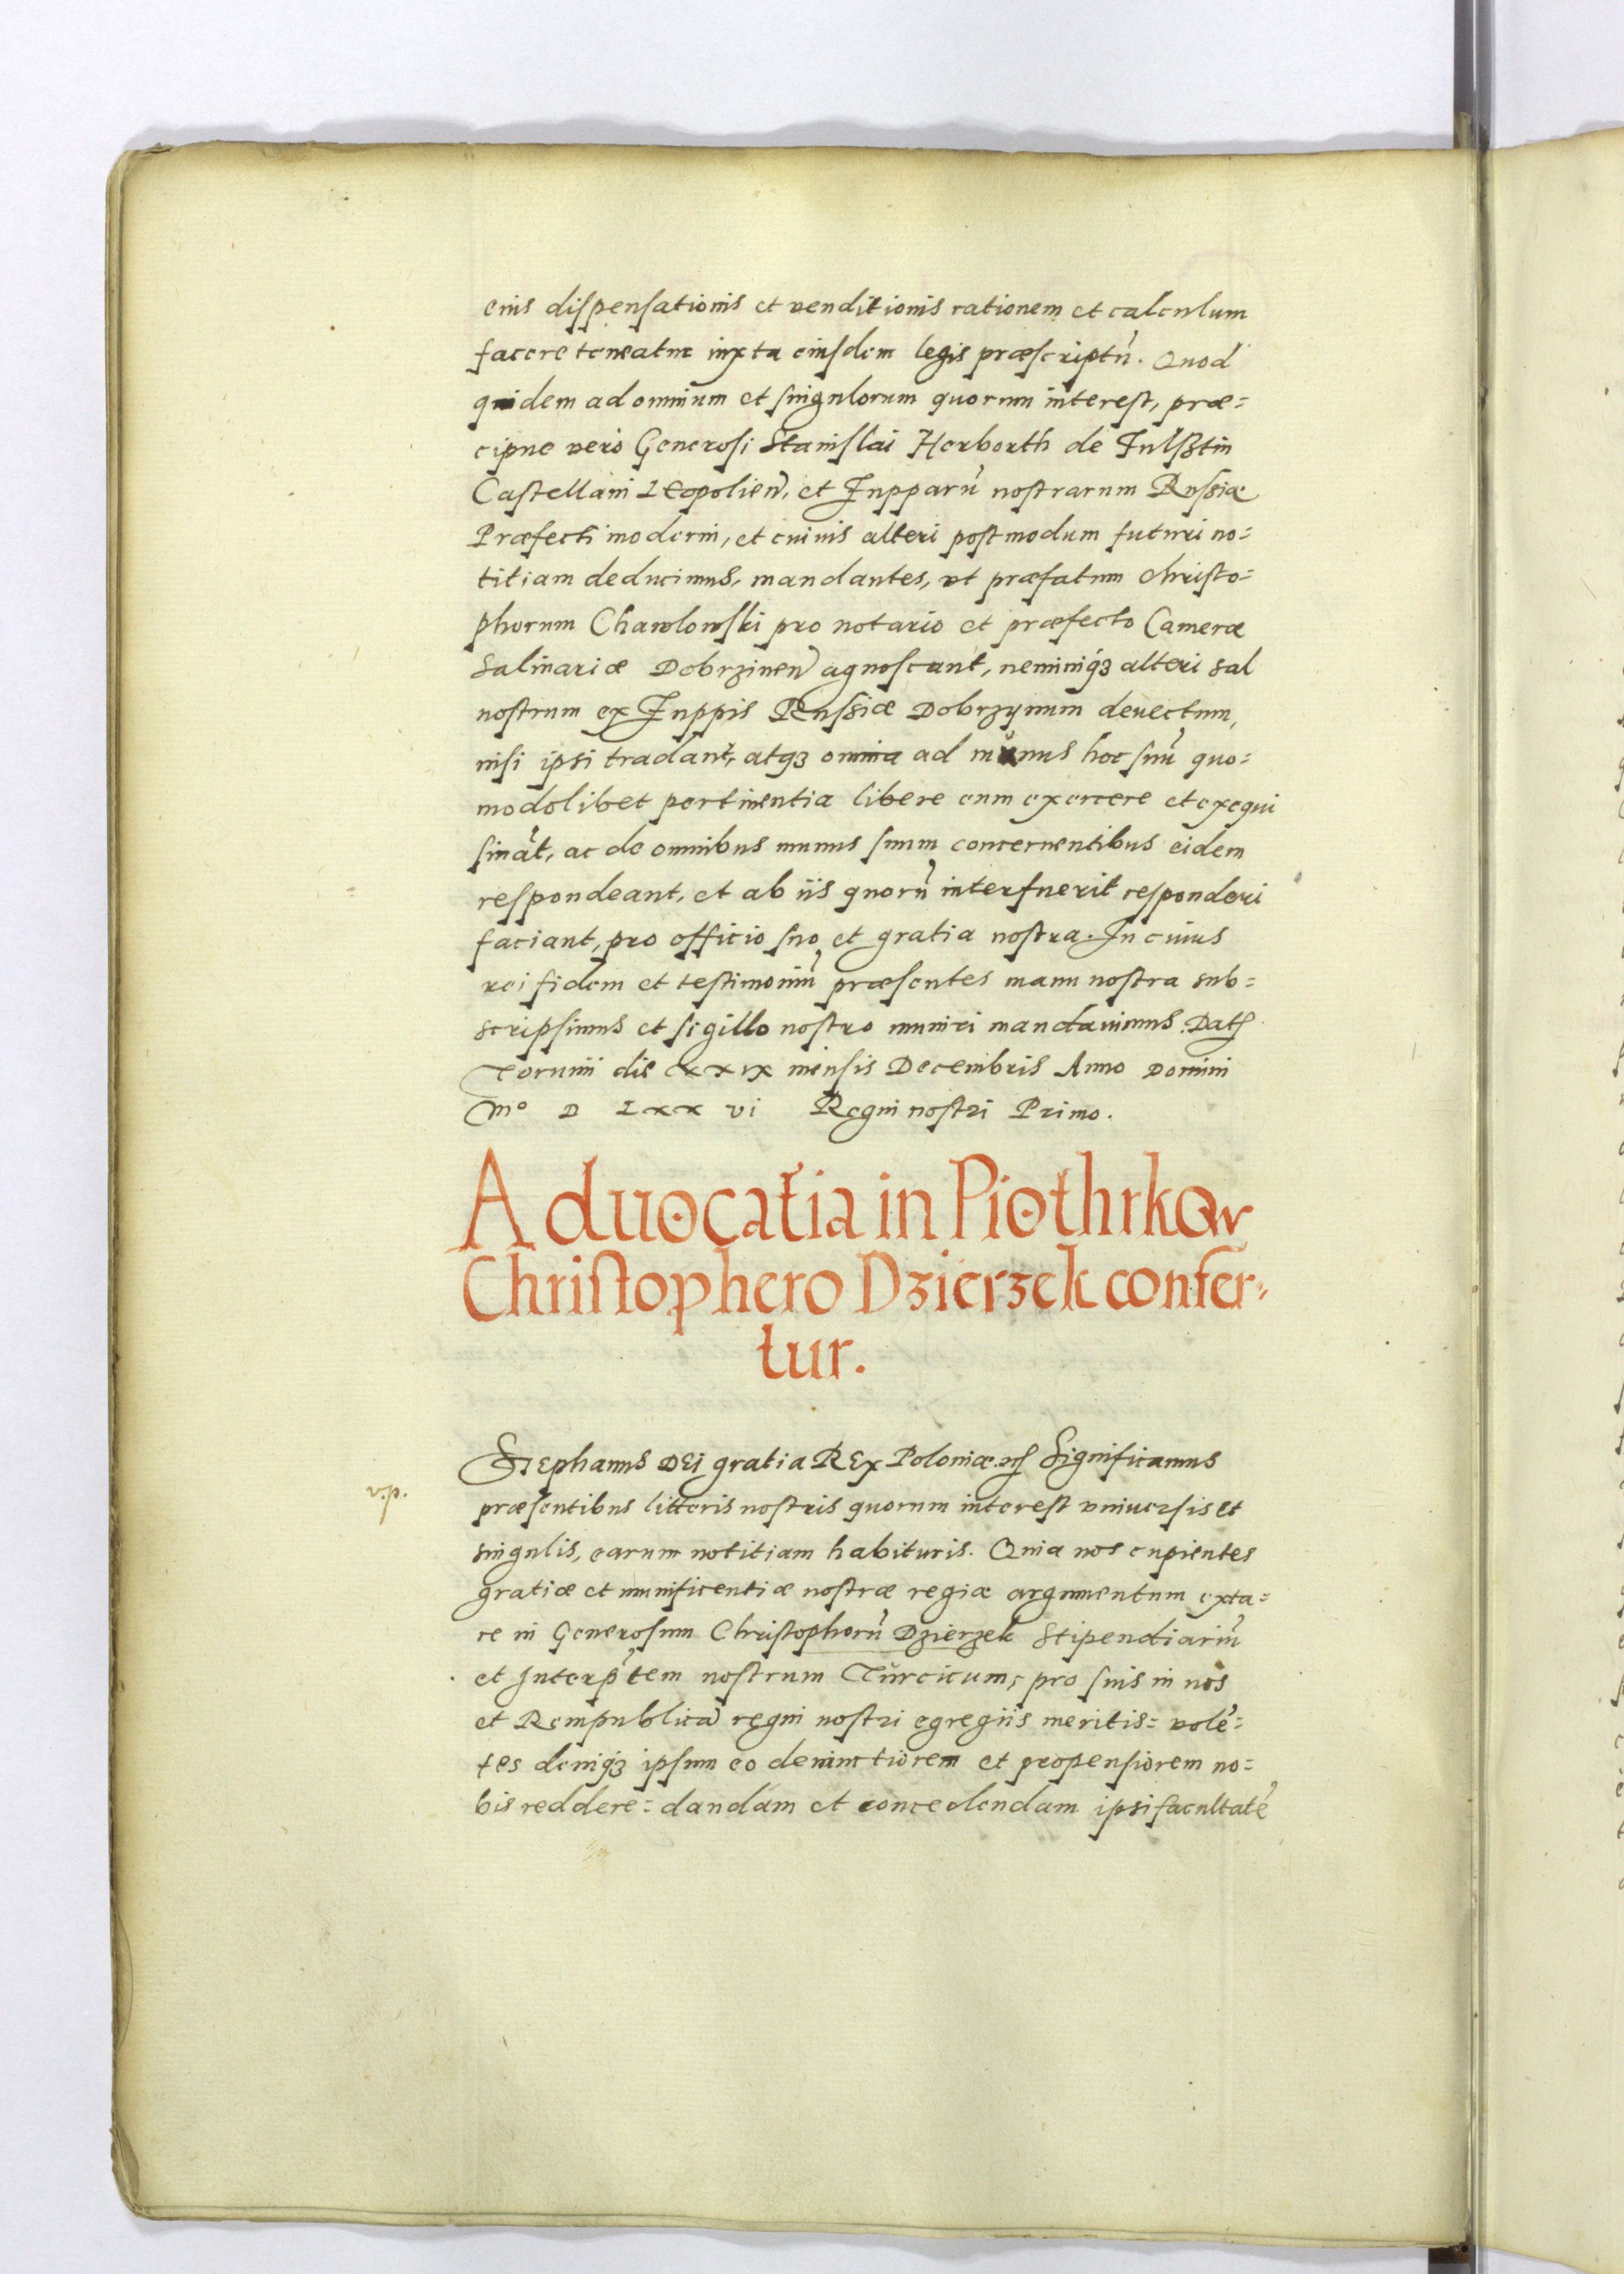 eius dispensationis et venditionis rationem et calculum
facere teneatur iuxta eiusdem legis præscriptũ. Quod
quidem ad omnium et singulorum quorum interest, præ=
cipue vero Generosi Stanislai Herborth de Fulsztin
Castellani Leopolien, et Zupparũ nostrarum Russiæ
Præfecti moderni, et cuiuis alteri postmodum futuri no=
titiam deducimus, mandantes, vt præfatum Christo=
phorum Chawlowski pro notario et præfecto Cameræ
Salinariæ Dobrzinen agnoscant, neminiq3 alteri sal
nostrum ex Zuppis Russiæ Dobrzynum deuectum,
nisi ipsi tradant, atq3 omnia ad munus hoc suũ quo=
modolibet pertinentia libere eum exercere et exequi
sinãt, ac de omnibus munus suum concernentibus eidem
respondeant, et ab iis quorũ interfuerit responderi
faciant, pro officio suo et gratia nostra. In cuius
rei fidem et testimoniũ præsentes manu nostra sub=
scripsimus et sigillo nostro muniri mandauimus. Dat
Torunii die xxix mensis Decembris Anno Domini
Mo D Lxx vi Regni nostri Primo.
Aduocatia in Piothrkow
Christophero Dzierzek confer=
tur.
Stephanus DEi gratia REx Poloniæ etc Significamus
v.p.
præsentibus litteris nostris quorum interest vniuersis et
singulis, earum notitiam habituris. Quia nos cupientes
gratiæ et munificentiæ nostræ regiæ argumentum exta=
re in Generosum Christophorũ Dzierzek Stipendiariũ
et Interp̃tem nostrum Turcicum, pro suis in nos
et Rempublicã regni nostri egregiis meritis= volẽ=
tes deniq3 ipsum eo deuinctiorem et propensiorem no=
bis reddere= dandam et concedendam ipsi facultatẽ